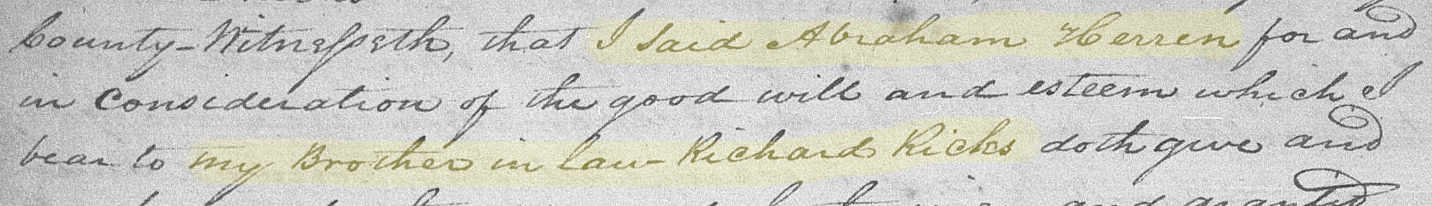 County-Witnesseth, that I said Abraham Herren for and
in Consideration of the good will and esteem which I
bear to my Brother in law Richard Ricks doth give and
and granted